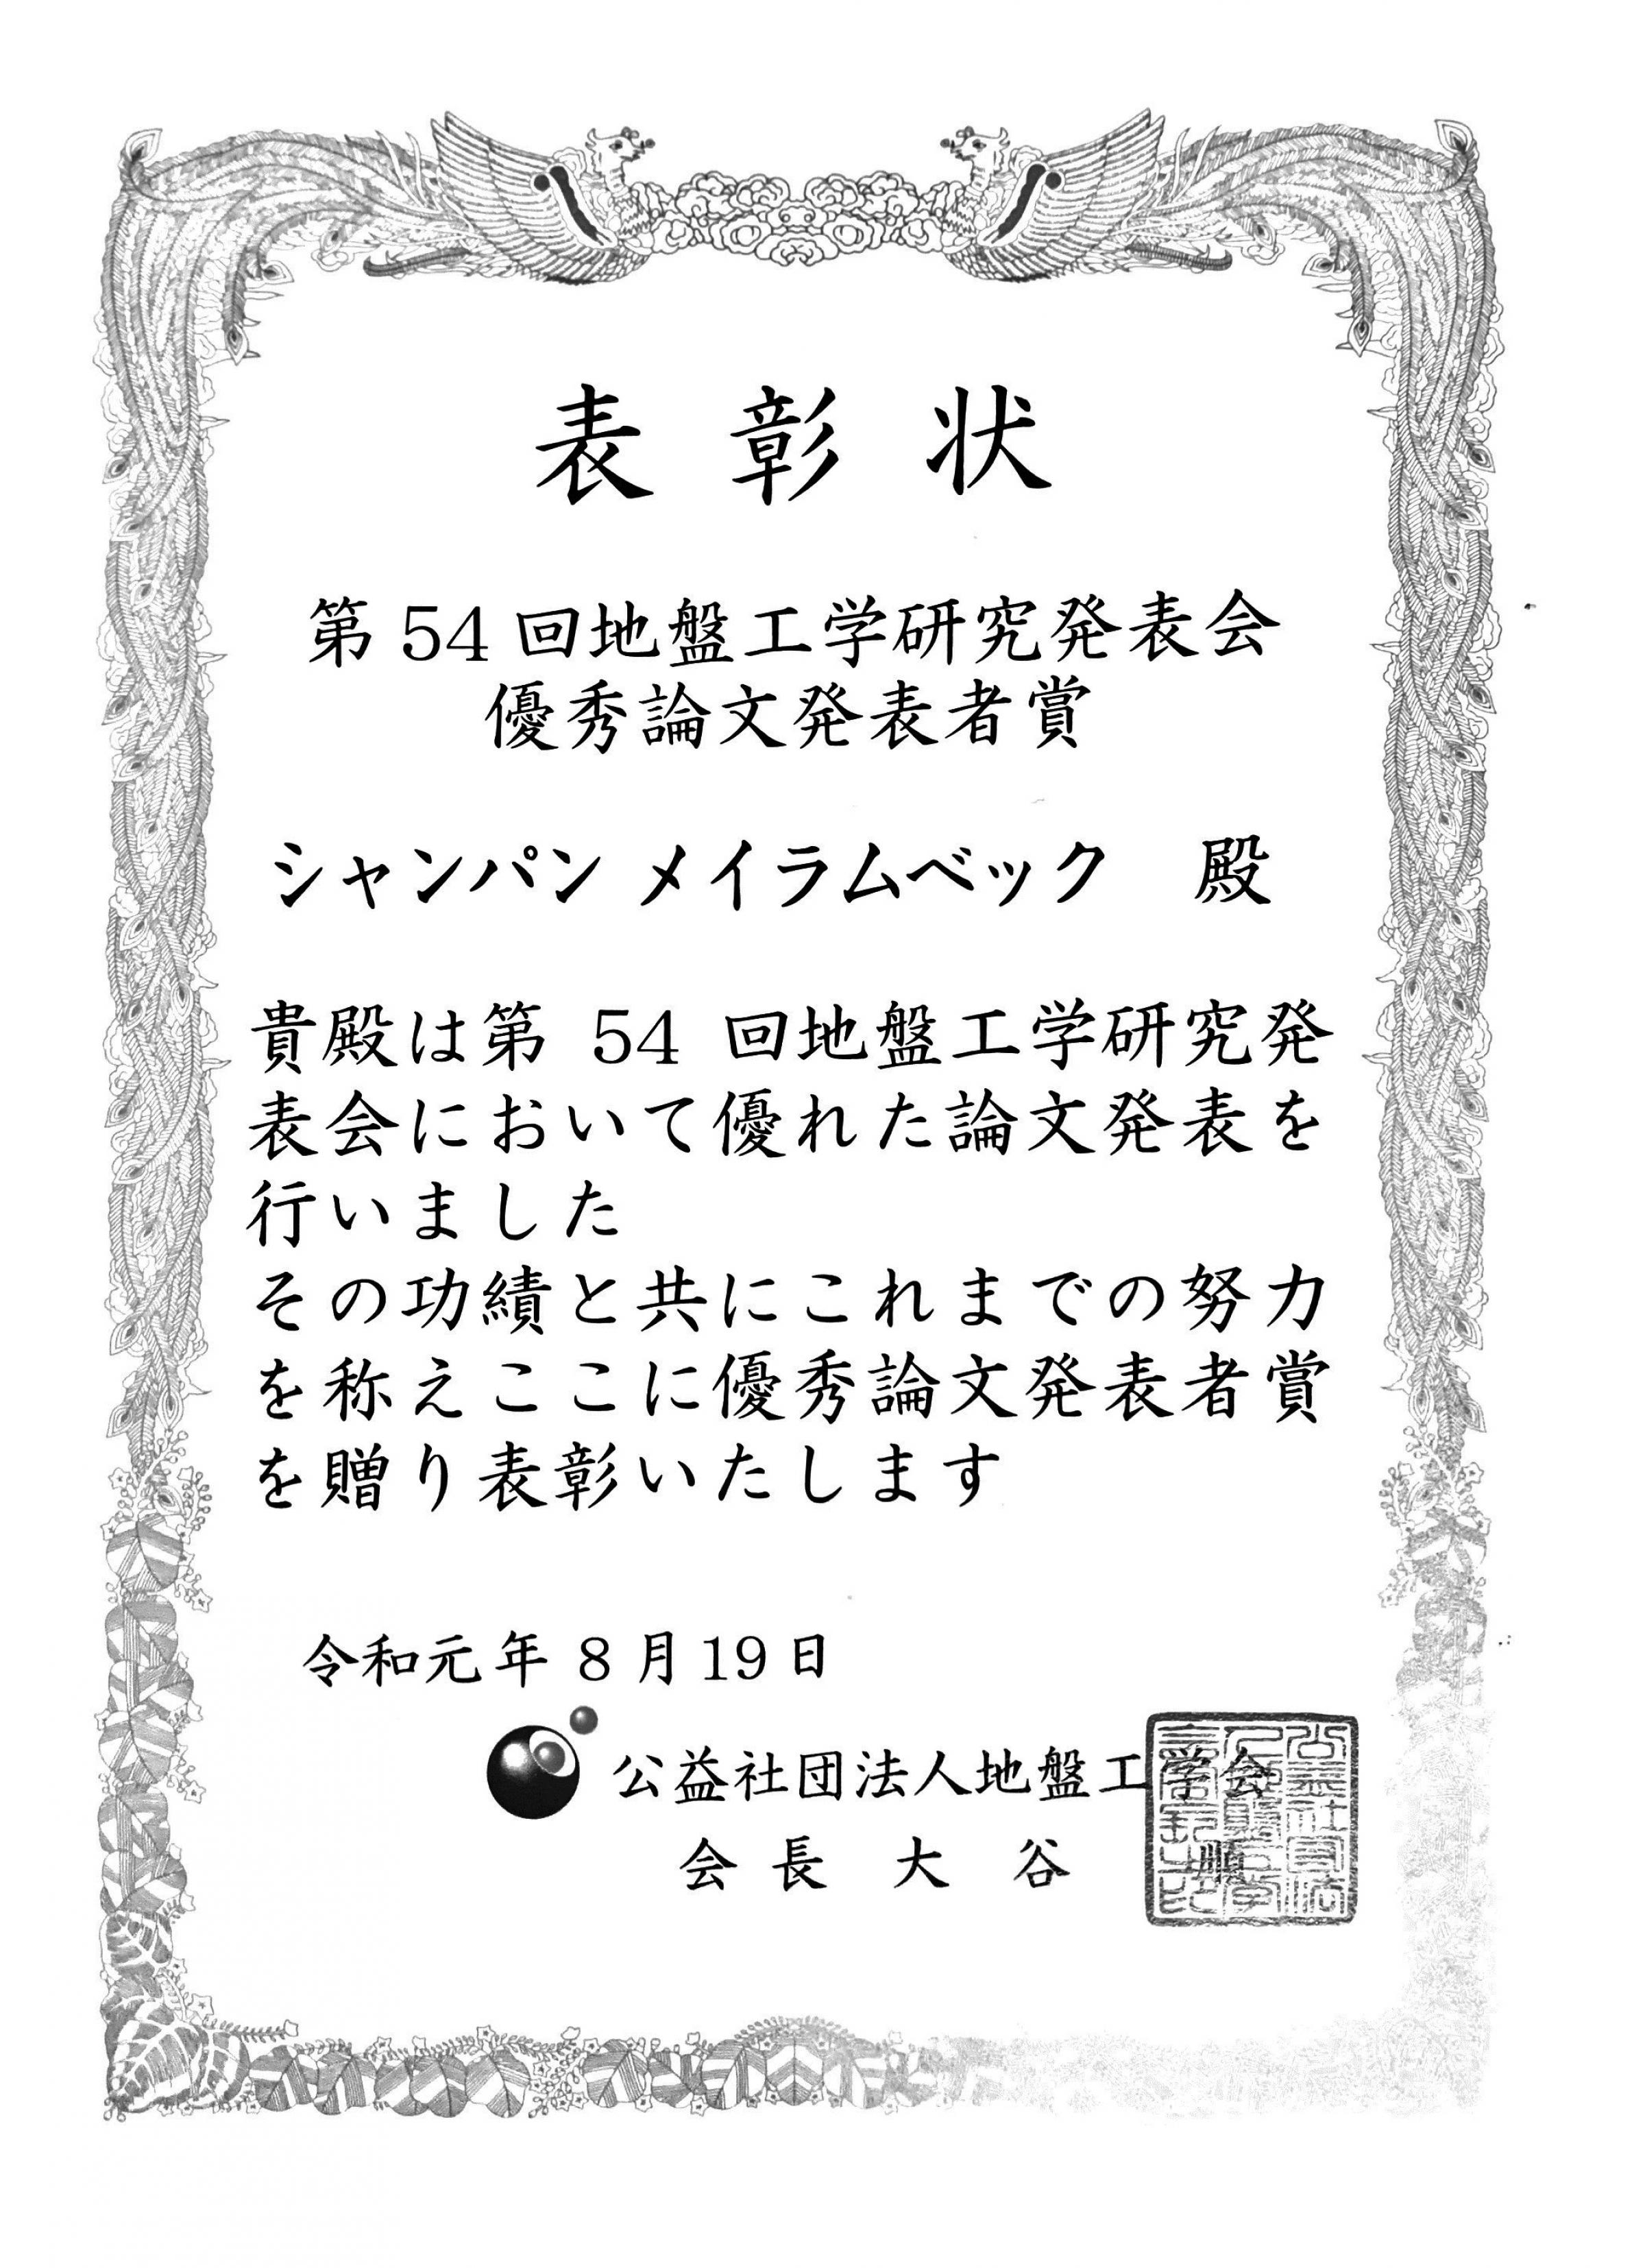 表彰状
第54回地盤工学研究発表会
優秀論文発表者賞
シャンパン メイラムベック 殿
貴殿は第 54 回地盤工学研究発
表会において優れた論文発表を
行いました
その功績と共にこれまでの努力
を称えここに優秀論文発表者賞
を贈り表彰いたします
令和元年 8 月 19 日
公益社団法人地盤工学会
会長 大谷 順